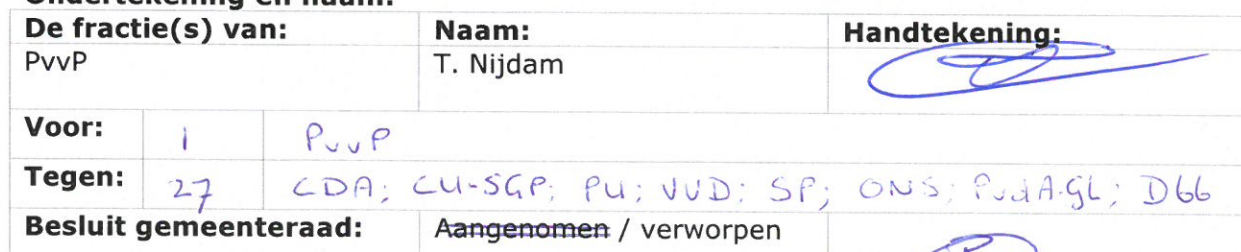 De fractie(s) van: Naam: Handtekening:
PvvP T. Nijdam
Voor: 1 PvvP
Tegen: 27 CDA; CU-SGP; PU; VVD; SP; ONS; PvdA-GL; D66
Besluit gemeenteraad: Aangenomen / verworpen